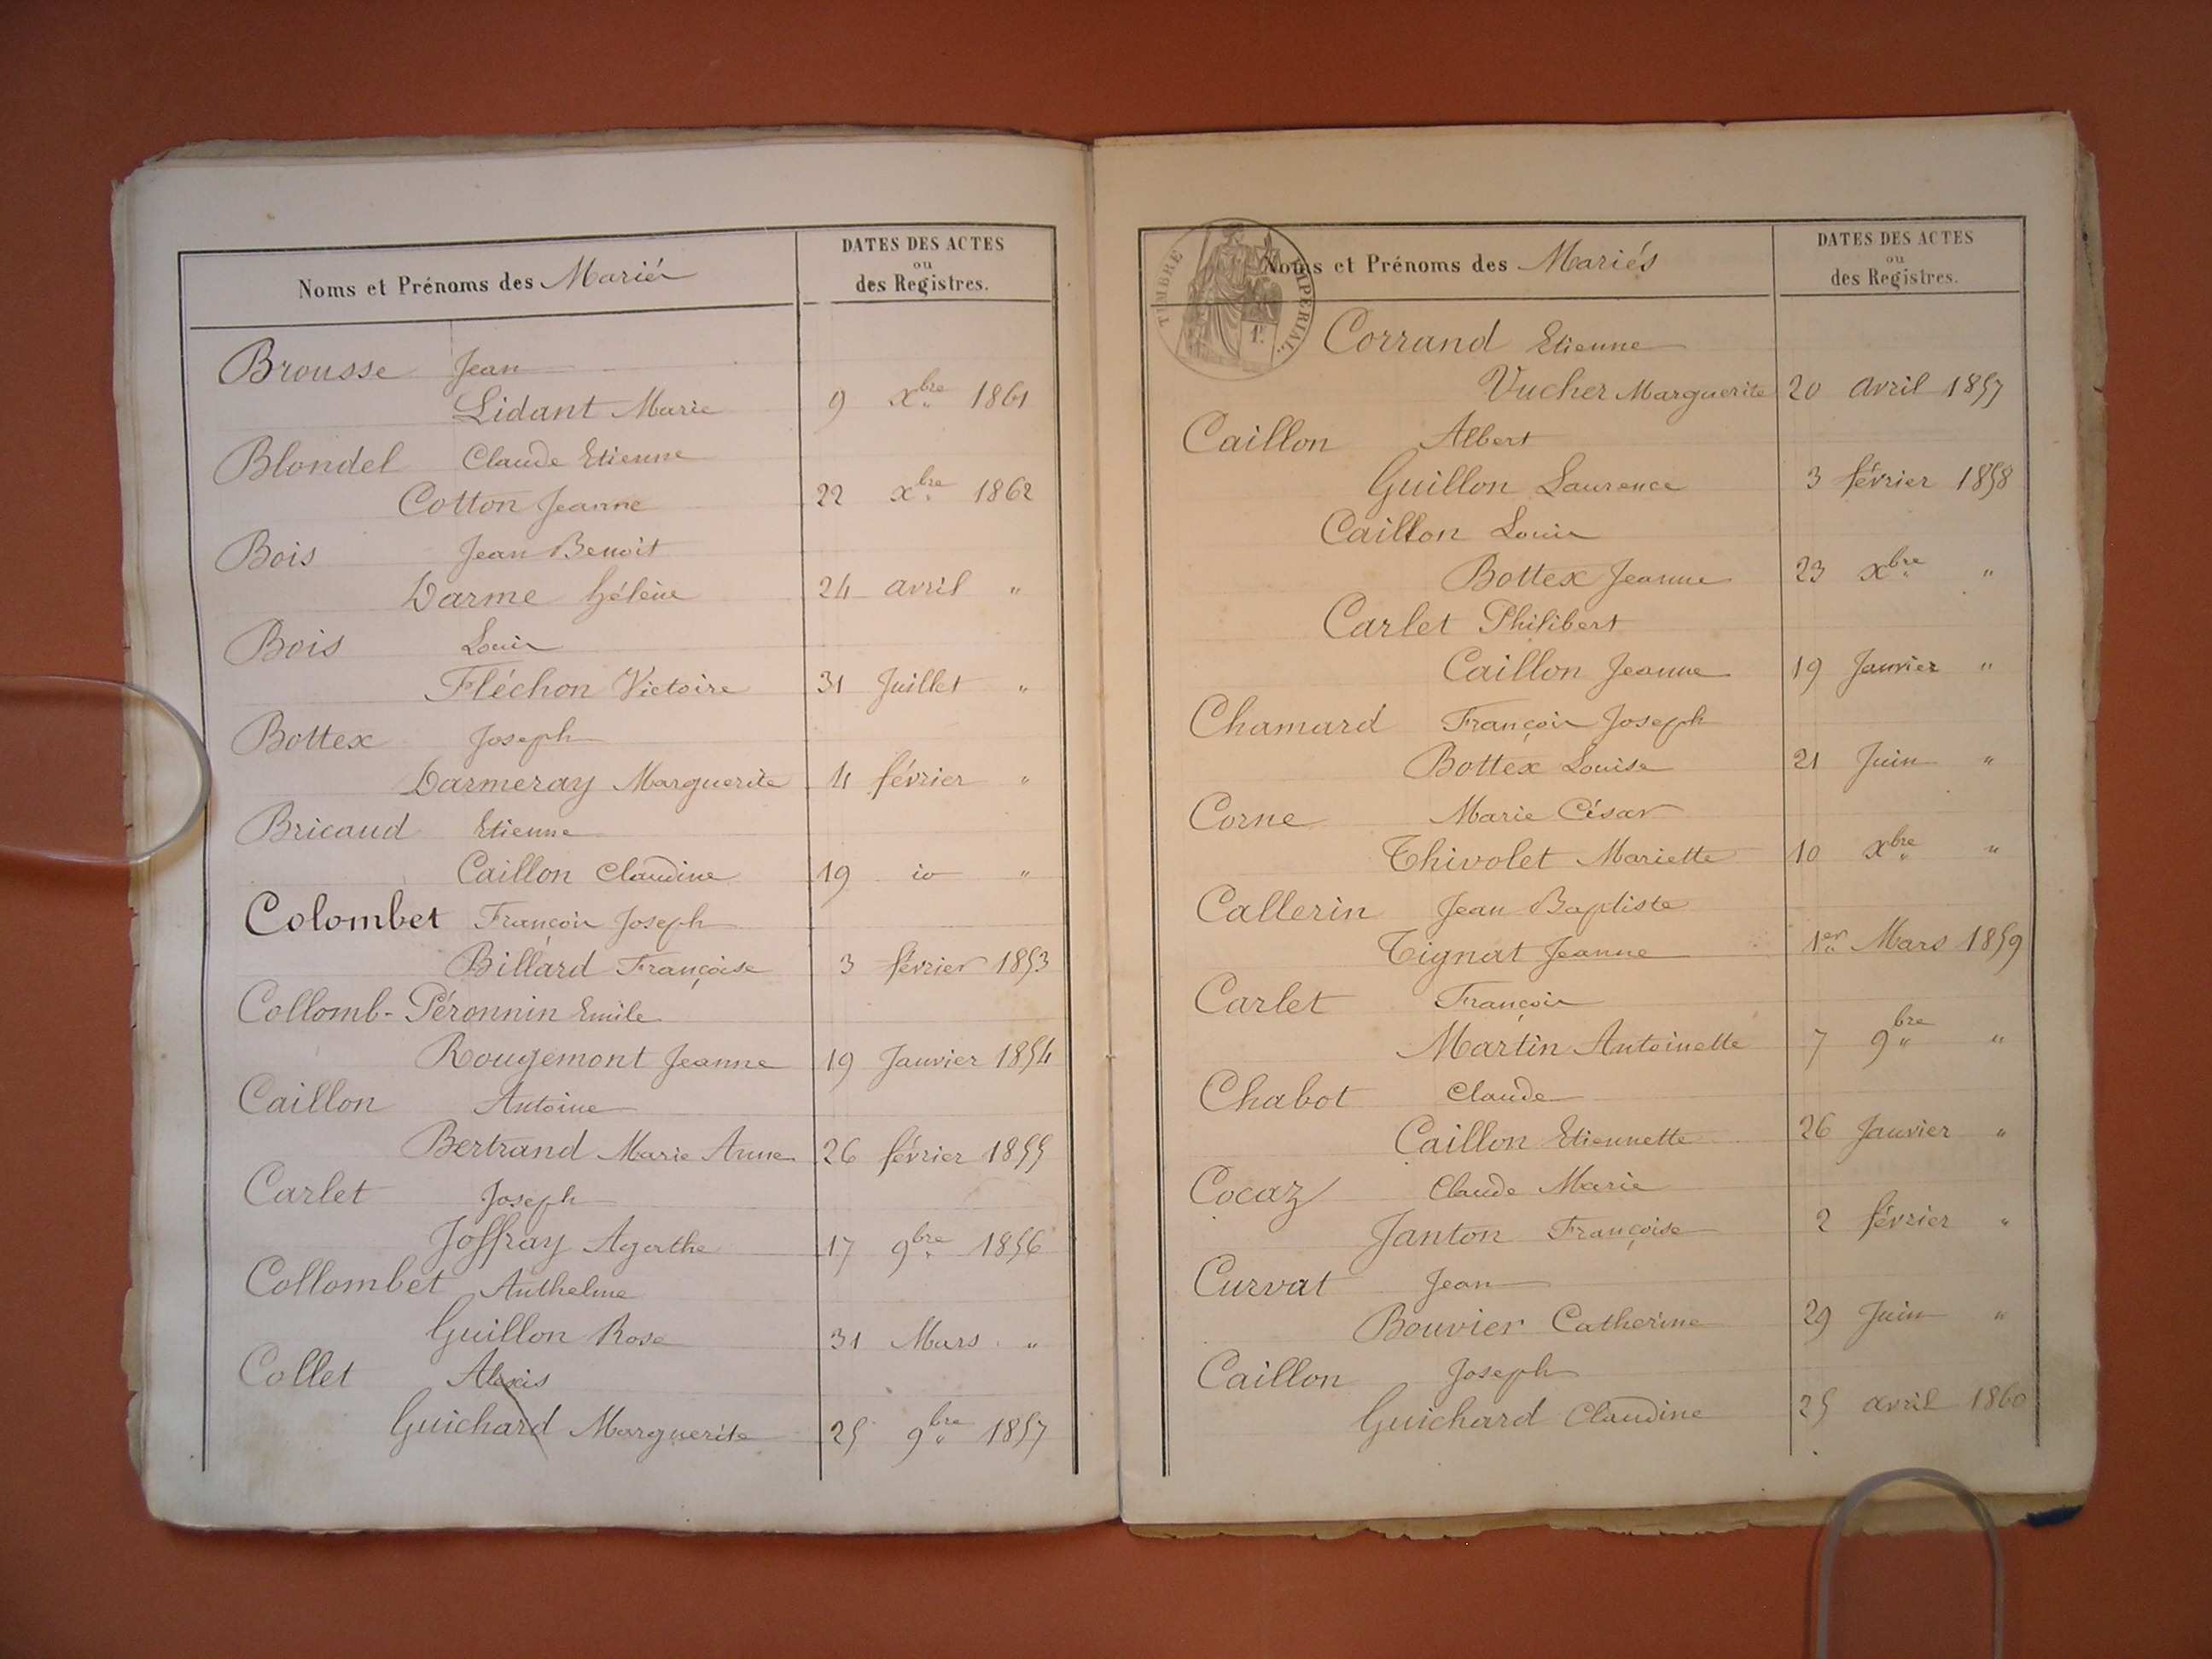 Noms et Prénoms des Mariés
DATES DES ACTES
ou
des Registres.
Brousse Jean
Lidant Marie 9 Xbre 1861
Blondel Claude Etienne
Cotton Jeanne 22 Xbre 1862
Bois Jean Benoit
Darme Hélène 24 avril "
Bois Louis
Fléchon Victoire 31 Juillet "
Bottex Joseph
Darmeray Marguerite 4 février "
Bricaud Etienne
Caillon Claudine 19 io "
Colombet François Joseph
Billard Françoise 3 février 1853
Collomb-Péronnin Emile
Rougemont Jeanne 19 Janvier 1854
Caillon Antoine
Bertrand Marie Anne 26 février 1855
Carlet Joseph
Joffray Agathe 17 9bre 1856
Collombet Anthelme
Guillon Rose 31 Mars "
Collet Alexis
Guichard Marguerite 25 9bre 1857
TIMBRE IMPÉRIAL.
1F.
Noms et Prénoms des Mariés
DATES DES ACTES
ou
des Registres.
Corrand Etienne
Vucher Marguerite 20 avril 1857
Caillon Albert
Guillon Laurence 3 février 1858
Caillon Louis
Bottex Jeanne 23 Xbre "
Carlet Philibert
Caillon Jeanne 19 Janvier "
Chamard François Joseph
Bottex Louise 21 Juin "
Corne Marie César
Thivolet Mariette 10 Xbre "
Callerin Jean Baptiste
Tignat Jeanne 1er Mars 1859
Carlet François
Martin Antoinette 7 9bre "
Chabot Claude
Caillon Etiennette 26 Janvier "
Cocaz Claude Marie
Janton Françoise 2 février "
Curvat Jean
Bouvier Catherine 29 Juin "
Caillon Joseph
Guichard Claudine 25 avril 1860